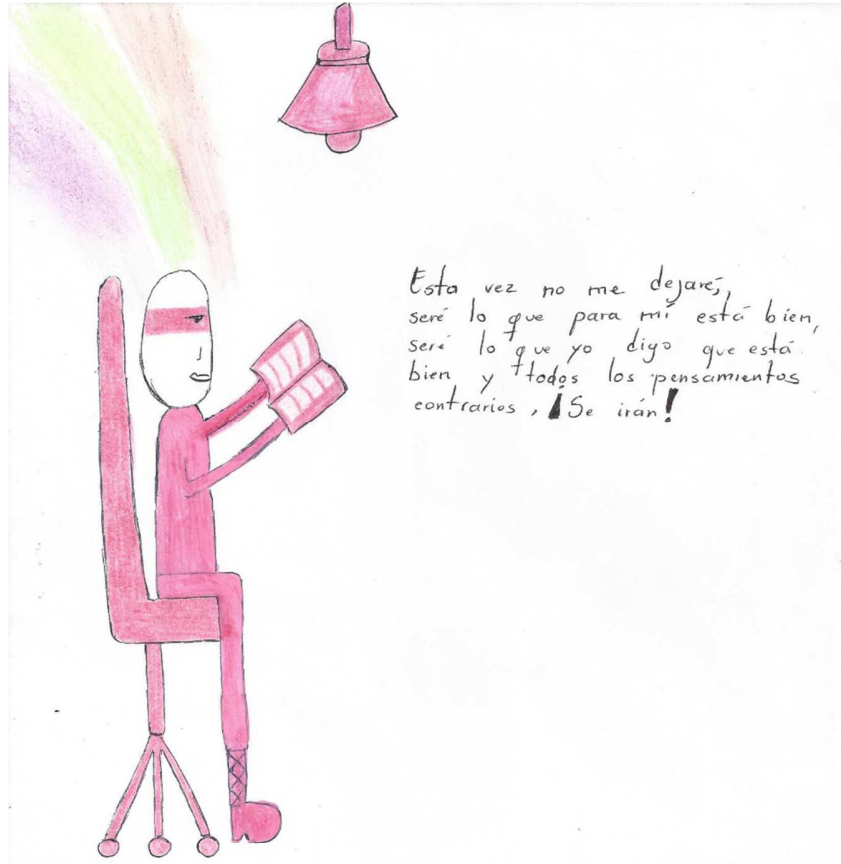 Esta vez no me dejaré,
seré lo que para mí está bien,
seré lo que yo digo que está
bien y todos los pensamientos
contrarios, ¡Se irán!